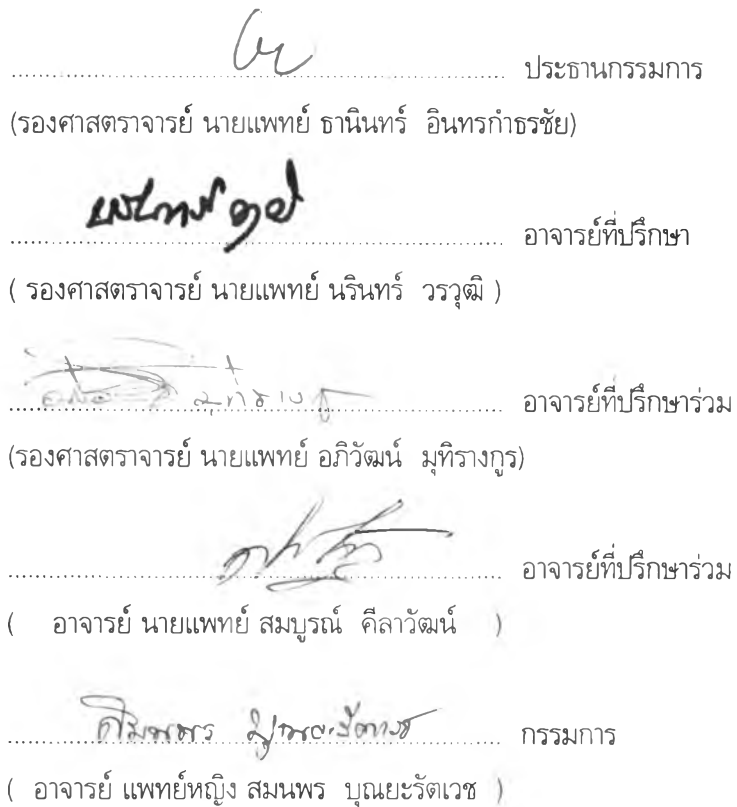 ประธานกรรมการ
(รองศาสตราจารย์ นายแพทย์ ธานินทร์ อินทรกำธรชัย)
อาจารย์ที่ปรึกษา
( รองศาสตราจารย์ นายแพทย์ นรินทร์ วรวุฒิ )
อาจารย์ที่ปรึกษาร่วม
(รองศาสตราจารย์ นายแพทย์ อภิวัฒน์ มุทิรางกูร)
อาจารย์ที่ปรึกษาร่วม
( อาจารย์ นายแพทย์ สมบูรณ์ คีลาวัฒน์ )
กรรมการ
( อาจารย์ แพทย์หญิง สมนพร บุณยะรัตเวช )